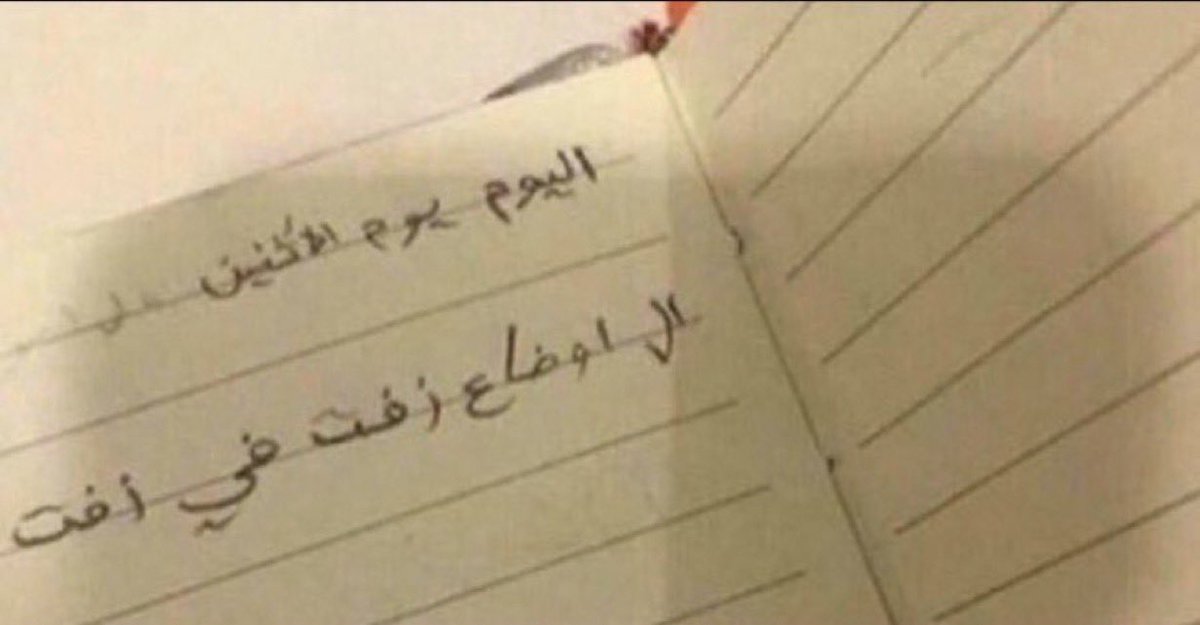 اليوم يوم الأثنين
ال اوضاع زفت في زفت